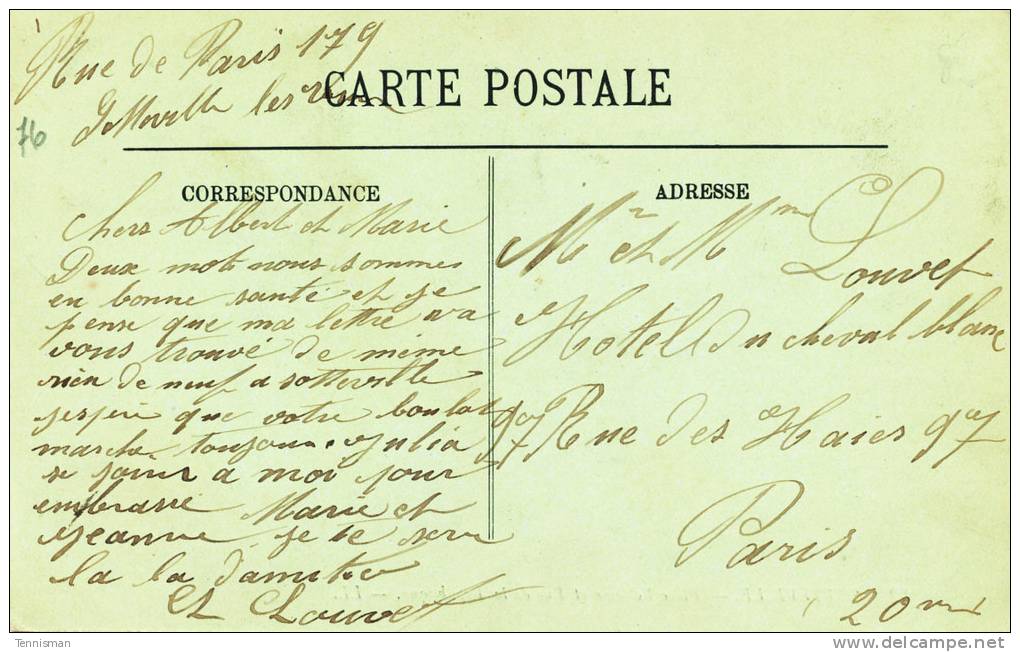 Rue de Paris 179
Sotteville les Rouen
CARTE POSTALE
76
CORRESPONDANCE
Chers Albert et Marie
Deux mots nous sommes
en bonne santé et je
pense que ma lettre va
vous trouvé de même
rien de neuf a sotteville
jespere que votre boulot
marche toujours. Julia
se joint a moi pour
embrasse Marie et
Jeanne je te serre
la la d'amitier
Louvet
ADRESSE
Mr et Mme Louvet
Hotel du cheval blanc
97 Rue des Haies 97
Paris
20
Tennisman
delcampe.net